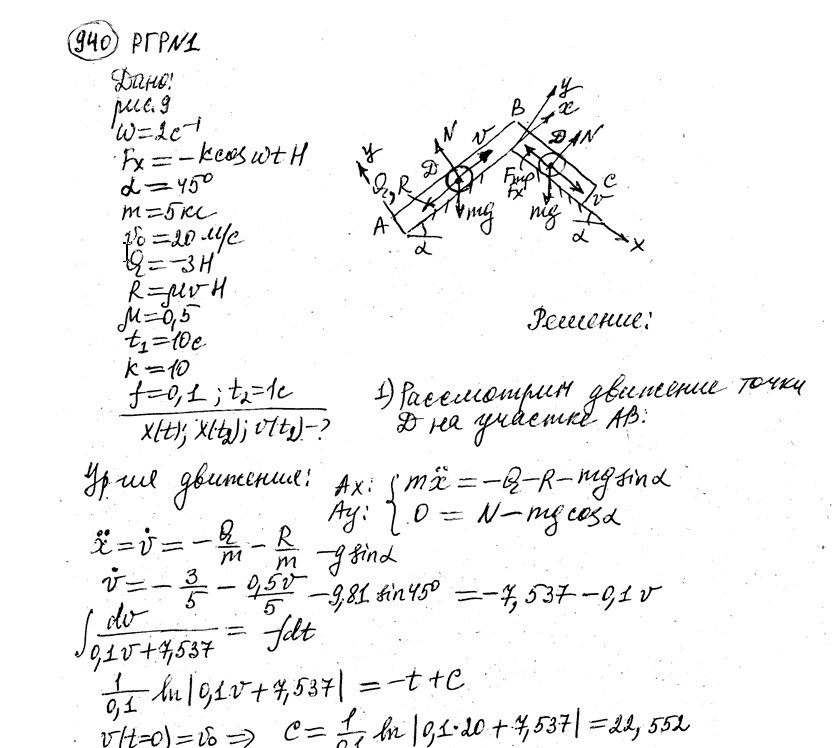 940 РГР№1
Дано:
рис. 9
ω=2с⁻¹
Fx = -kcosωt Н
α=45°
m=5кг
v₀=20м/с
Q=-3Н
R=μvН
μ=0,5
t₁=10с
k=10
f=0,1; t₂=1с
x(t); x(t₂); v(t₂)-?
y
N
v
D
Q, R
A
α
mg
B
y
x
D
N
Fтр
Fx
C
v
mg
α
x
Решение:
1) Рассмотрим движение точки
D на участке AB:
Ур-ия движения:
Ax: { mẍ = -Q-R-mgsinα
Ay: { 0 = N-mgcosα
ẍ = v̇ = -Q/m - R/m - gsinα
v̇ = -3/5 - 0,5v/5 - 9,81sin45° = -7,537-0,1v
∫dv/(0,1v+7,537) = -∫dt
1/0,1 ln|0,1v+7,537| = -t+C
v(t=0)=v₀ ⇒ C = 1/0,1 ln|0,1·20+7,537| = 22,552